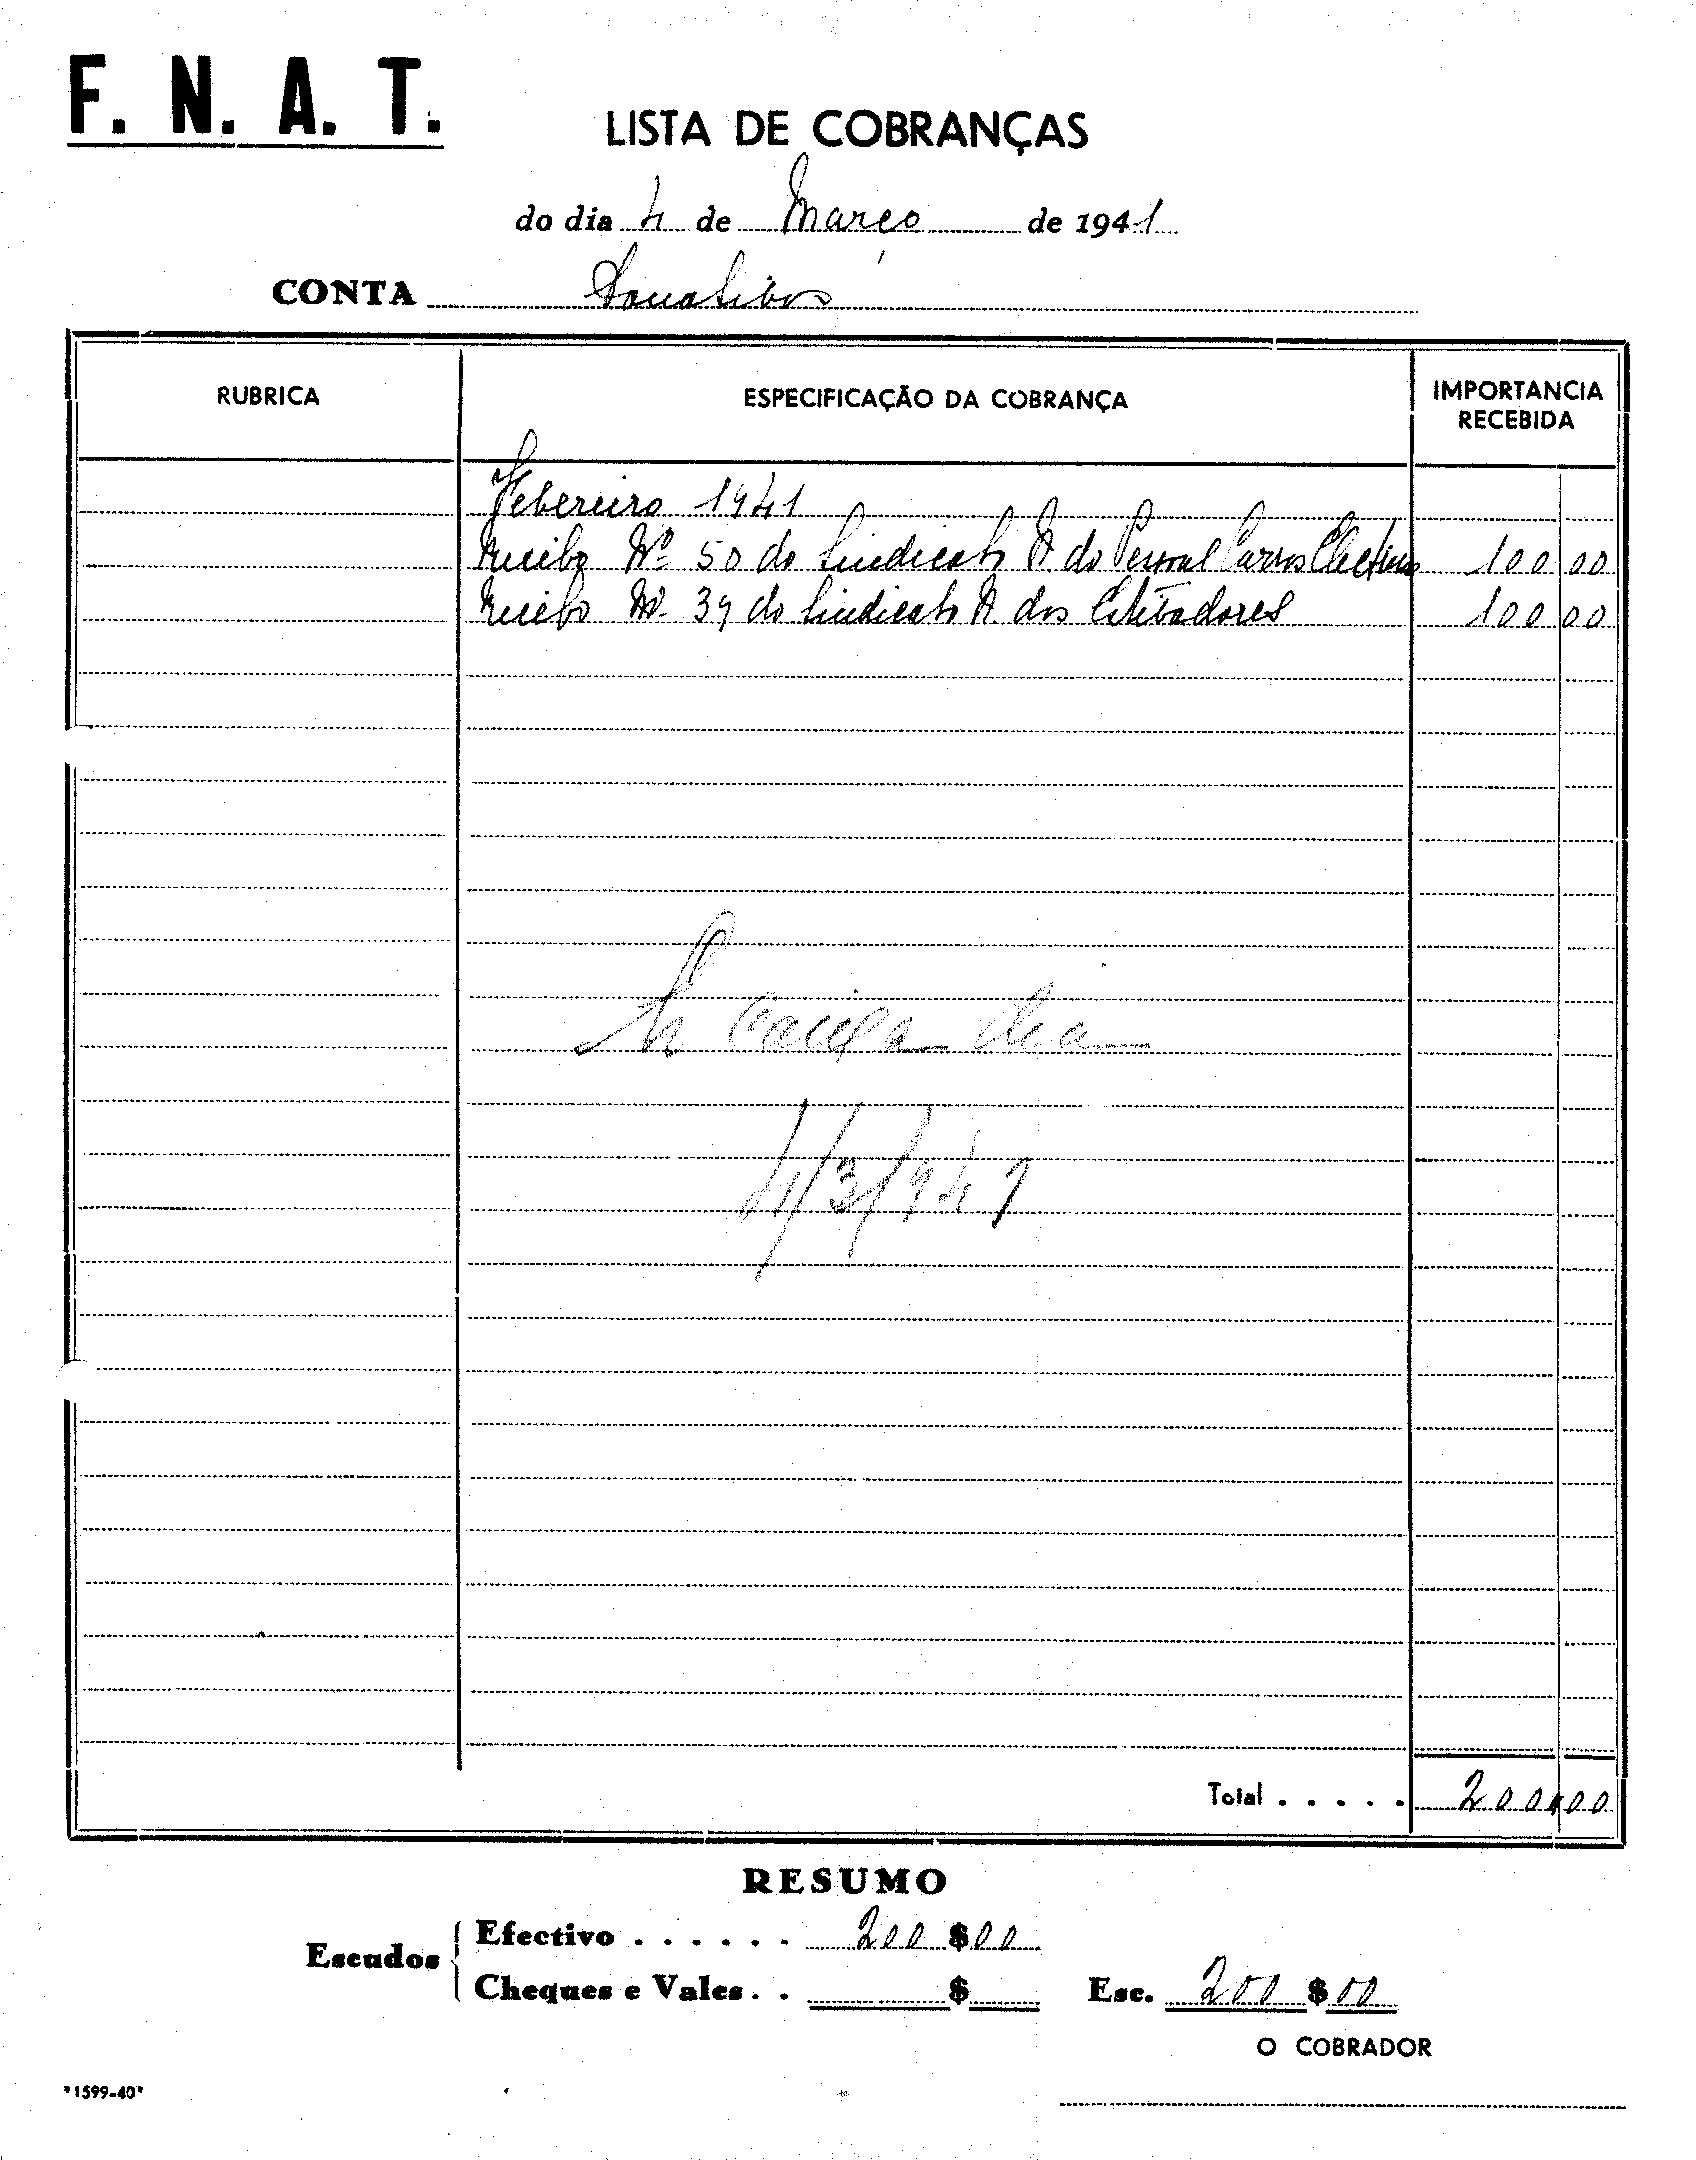 F. N. A. T.
LISTA DE COBRANÇAS
do dia 4 de Março de 1941
CONTA Donativos
RUBRICA ESPECIFICAÇÃO DA COBRANÇA IMPORTANCIA RECEBIDA
Febereiro 1941
Recibo Nº 50 do Sindicato N do Pessoal Carros Electricos 100 00
Recibo Nº 39 do Sindicato N. dos Estivadores 100 00
Caixa
4/3/941
Total . . . . . 200 00
RESUMO
Escudos
Efectivo . . . . . . 200 $ 00
Cheques e Vales . . $ Esc. 200 $ 00
O COBRADOR
"1599-40"